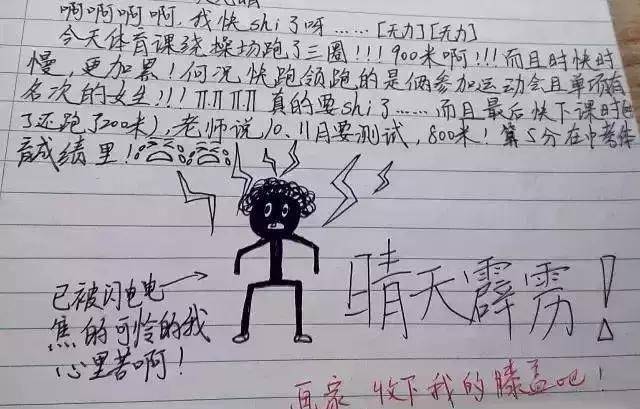 啊啊啊啊啊,我快shi了呀……[无力][无力]
今天体育课绕操场跑了三圈!!!900米啊!!!而且时快时
慢,更加累!何况,快跑领跑的是俩参加运动会且单项有
名次的女生!!!TT TT TT TT真的要shi了……而且最后快下课时
了还跑了200米),老师说,10、11月要测试,800米!算5分在中考体
育成绩里!
已被闪电电
焦的可怜的我
心里苦啊!
晴天霹雳!
画家 收下我的膝盖吧!